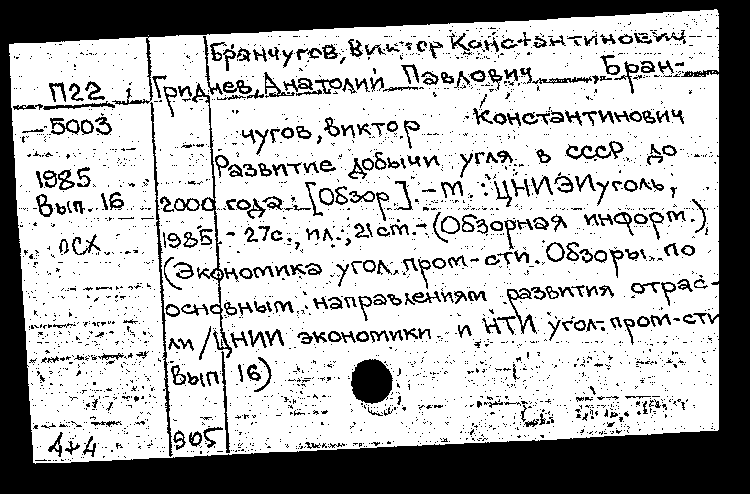 Бранчугов, Виктор Константинович
П22 Гриднев, Анатолий Павлович Бран-
5003 чугов, Виктор Константинович
Развитие добычи угля в СССР до
1985
Вып. 16 2000 года: [Обзор]. - М. : ЦНИЭИуголь,
осх 1985. - 27с., ил., 21см. - (Обзорная информ.)
(Экономика угол. пром-сти. Обзоры по
основным направлениям развития отрас-
ли / ЦНИИ экономики и НТИ угол. пром-сти
Вып. 16)
4+4 905